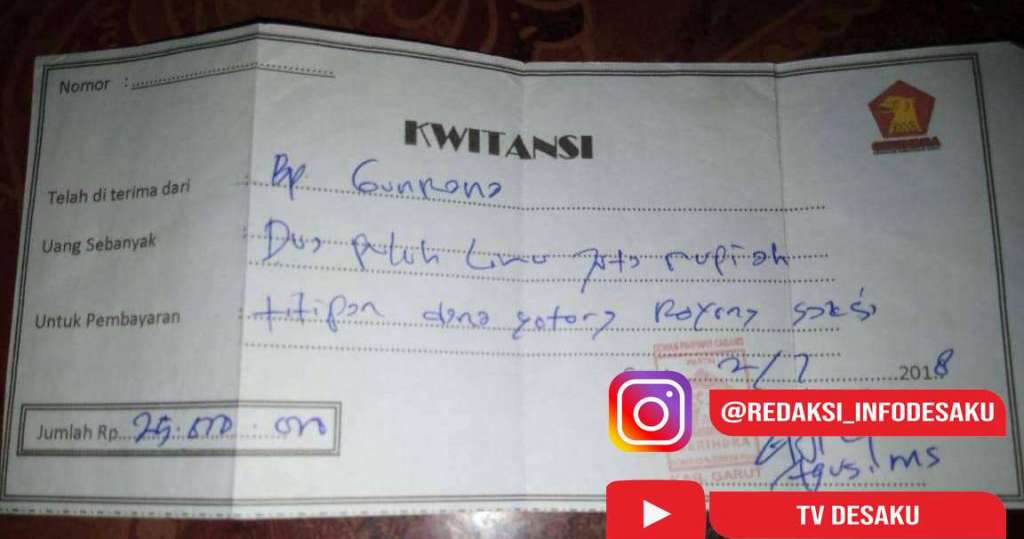 Nomor :
GERINDRA
KWITANSI
Telah di terima dari : Bp Gunrona
Uang Sebanyak : Dua puluh Lima juta rupiah
Untuk Pembayaran : titipan dana gotong Royong saksi
2/7 2018
GERINDRA
KAB. GARUT
Jumlah Rp. 25.000.000
Agus. MS
@REDAKSI_INFODESAKU
TV DESAKU